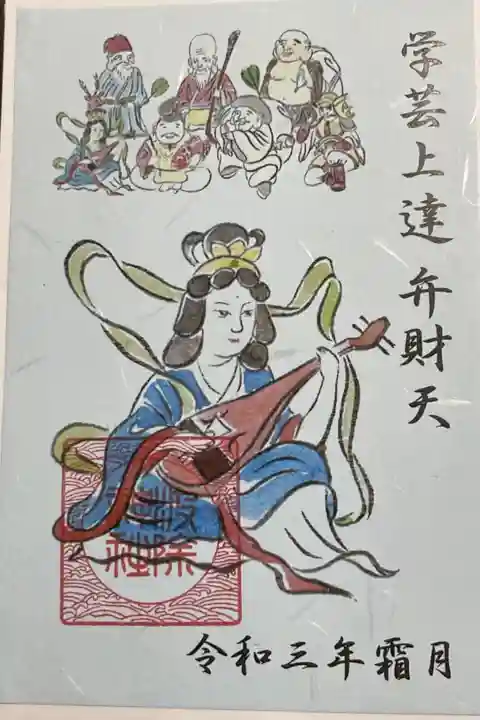 学芸上達 弁財天
令和三年霜月